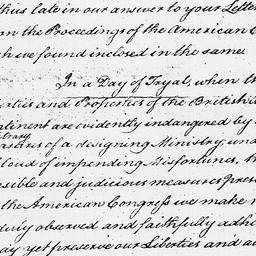 thus late in our answer to your Letter
the Proceedings of the American
h we found inclosed in the same.
In a Day of Tryal, when th
erties and Properties of the British
ntinent are evidently indangered by
itrary
asures of a designing Ministry, und
loud of impending Misfortunes, th
sible and judicious measures pres
the American Congress we make n
duly observed and faithfully adh
ay yet preserve our Liberties and a